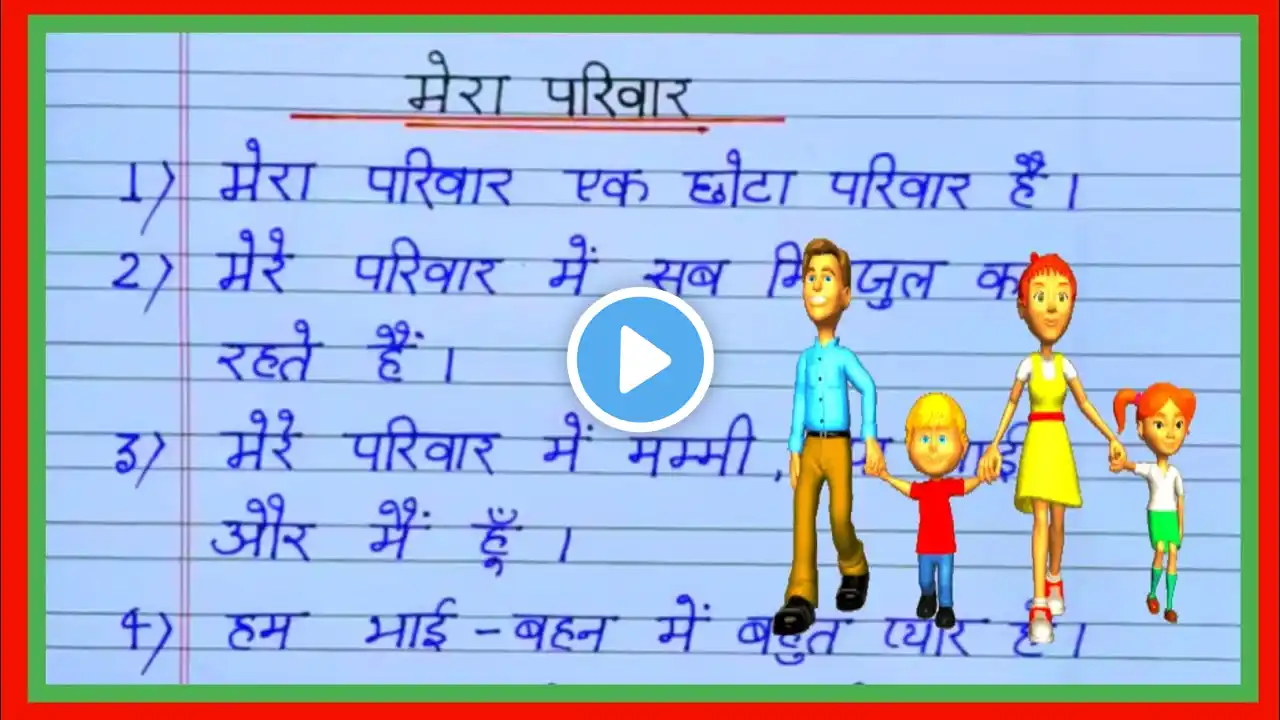 मेरा परिवार
1) मेरा परिवार एक छोटा परिवार है।
2) मेरे परिवार में सब
रहते हैं।
3) मेरे परिवार में मम्मी,
और मैं हूँ।
4) हम भाई-बहन में बहुत प्यार है।